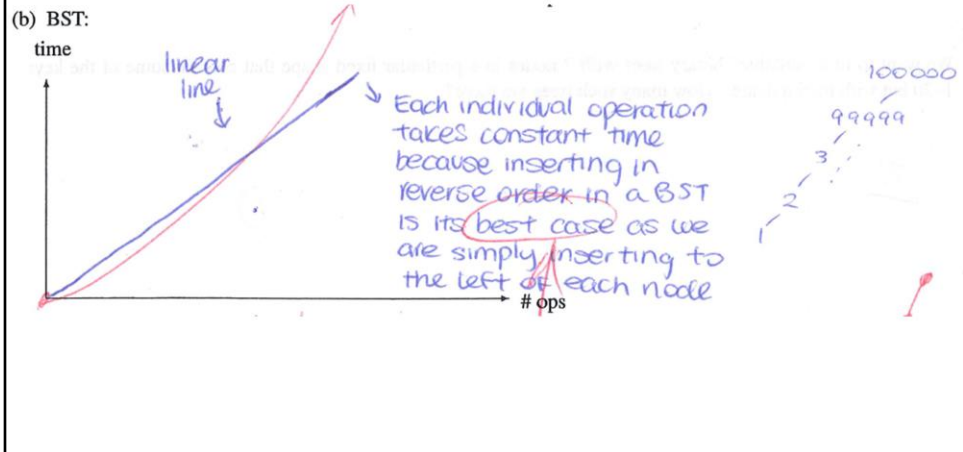 (b) BST:
time
linear
line
Each individual operation
takes constant time
because inserting in
reverse order in a BST
is its best case as we
are simply inserting to
the left of each node
# ops
100000
99999
3
2
1